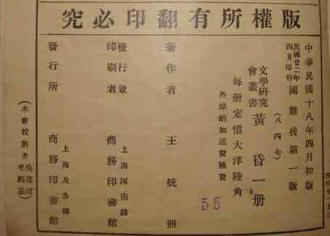 版權所有翻印必究
中華民國十八年四月初版
民國廿二年四月印行
國難後第一版
(八四七)
文學研究會叢書
黃昏一册
每册定價大洋陸角
外埠酌加運費匯費
55
著作者 王統照
發行兼印刷者 上海河南路 商務印書館
發行所 上海及各埠 商務印書館
(本書校對者